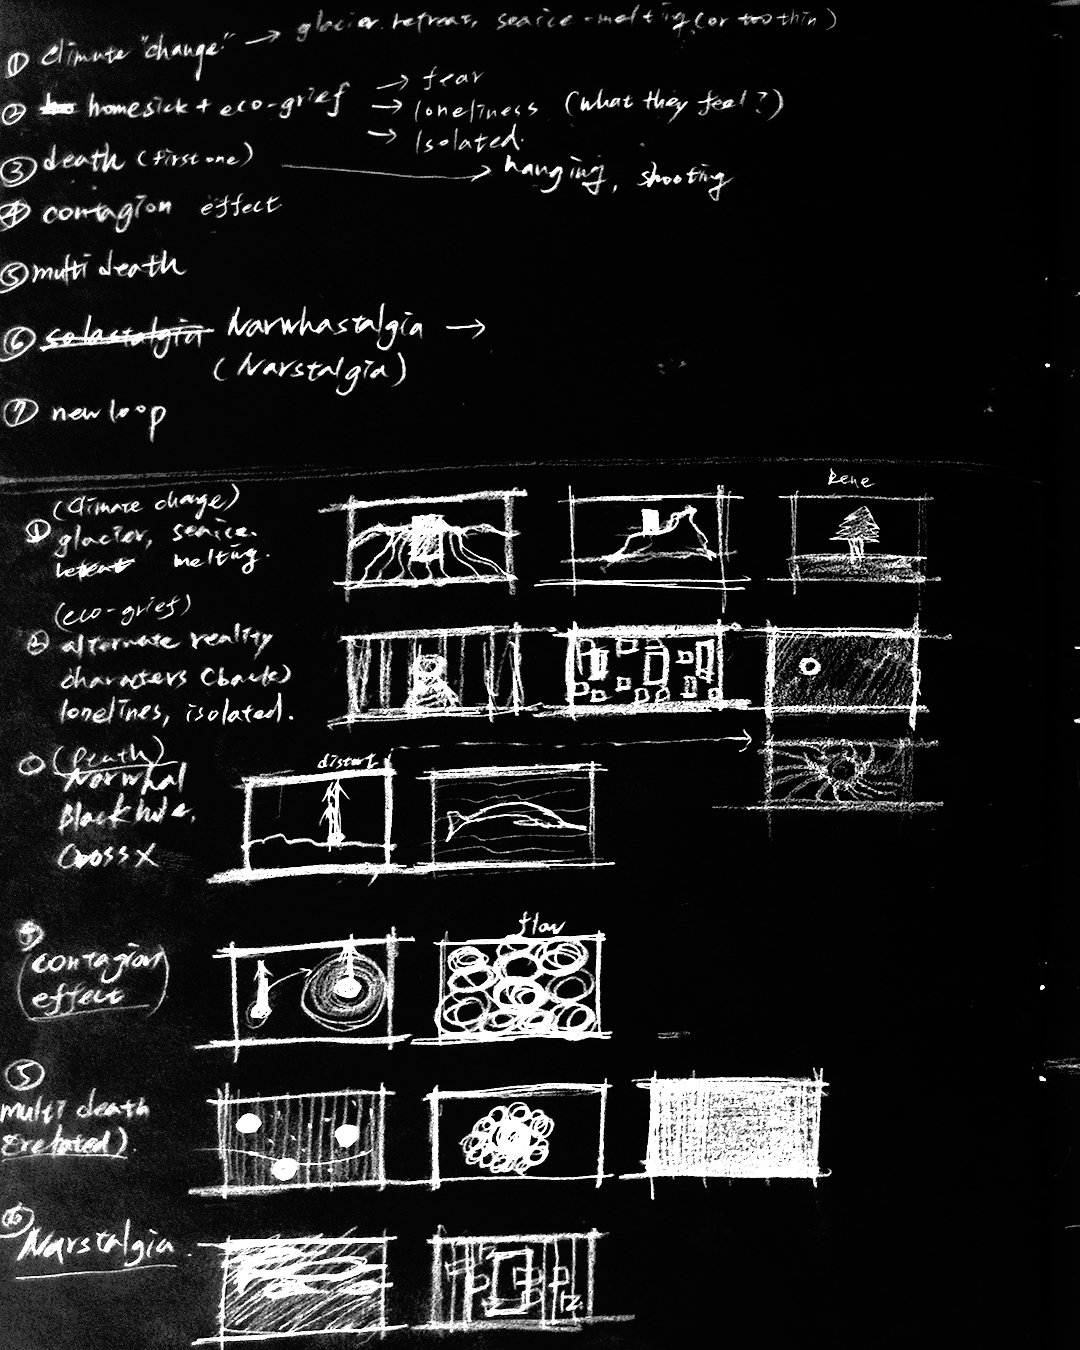 ① climate "change" → glacier retreat, seaice-melting (or too thin)
② homesick + eco-grief → fear
→ loneliness (what they feel?)
→ Isolated.
③ death (first one) → hanging, shooting
④ contagion effect
⑤ multi death
⑥ solastalgia Narwhastalgia →
(Narstalgia)
⑦ new loop
(Climate change)
① glacier, seaice.
retreat melting.
Rene
(eco-grief)
② alternate reality
characters (back)
lonelines, isolated.
(Death)
Narwhal
Black hole,
Cross X
distort
④
(contagion
effect)
flow
⑤
multi death
⑥
Narstalgia.